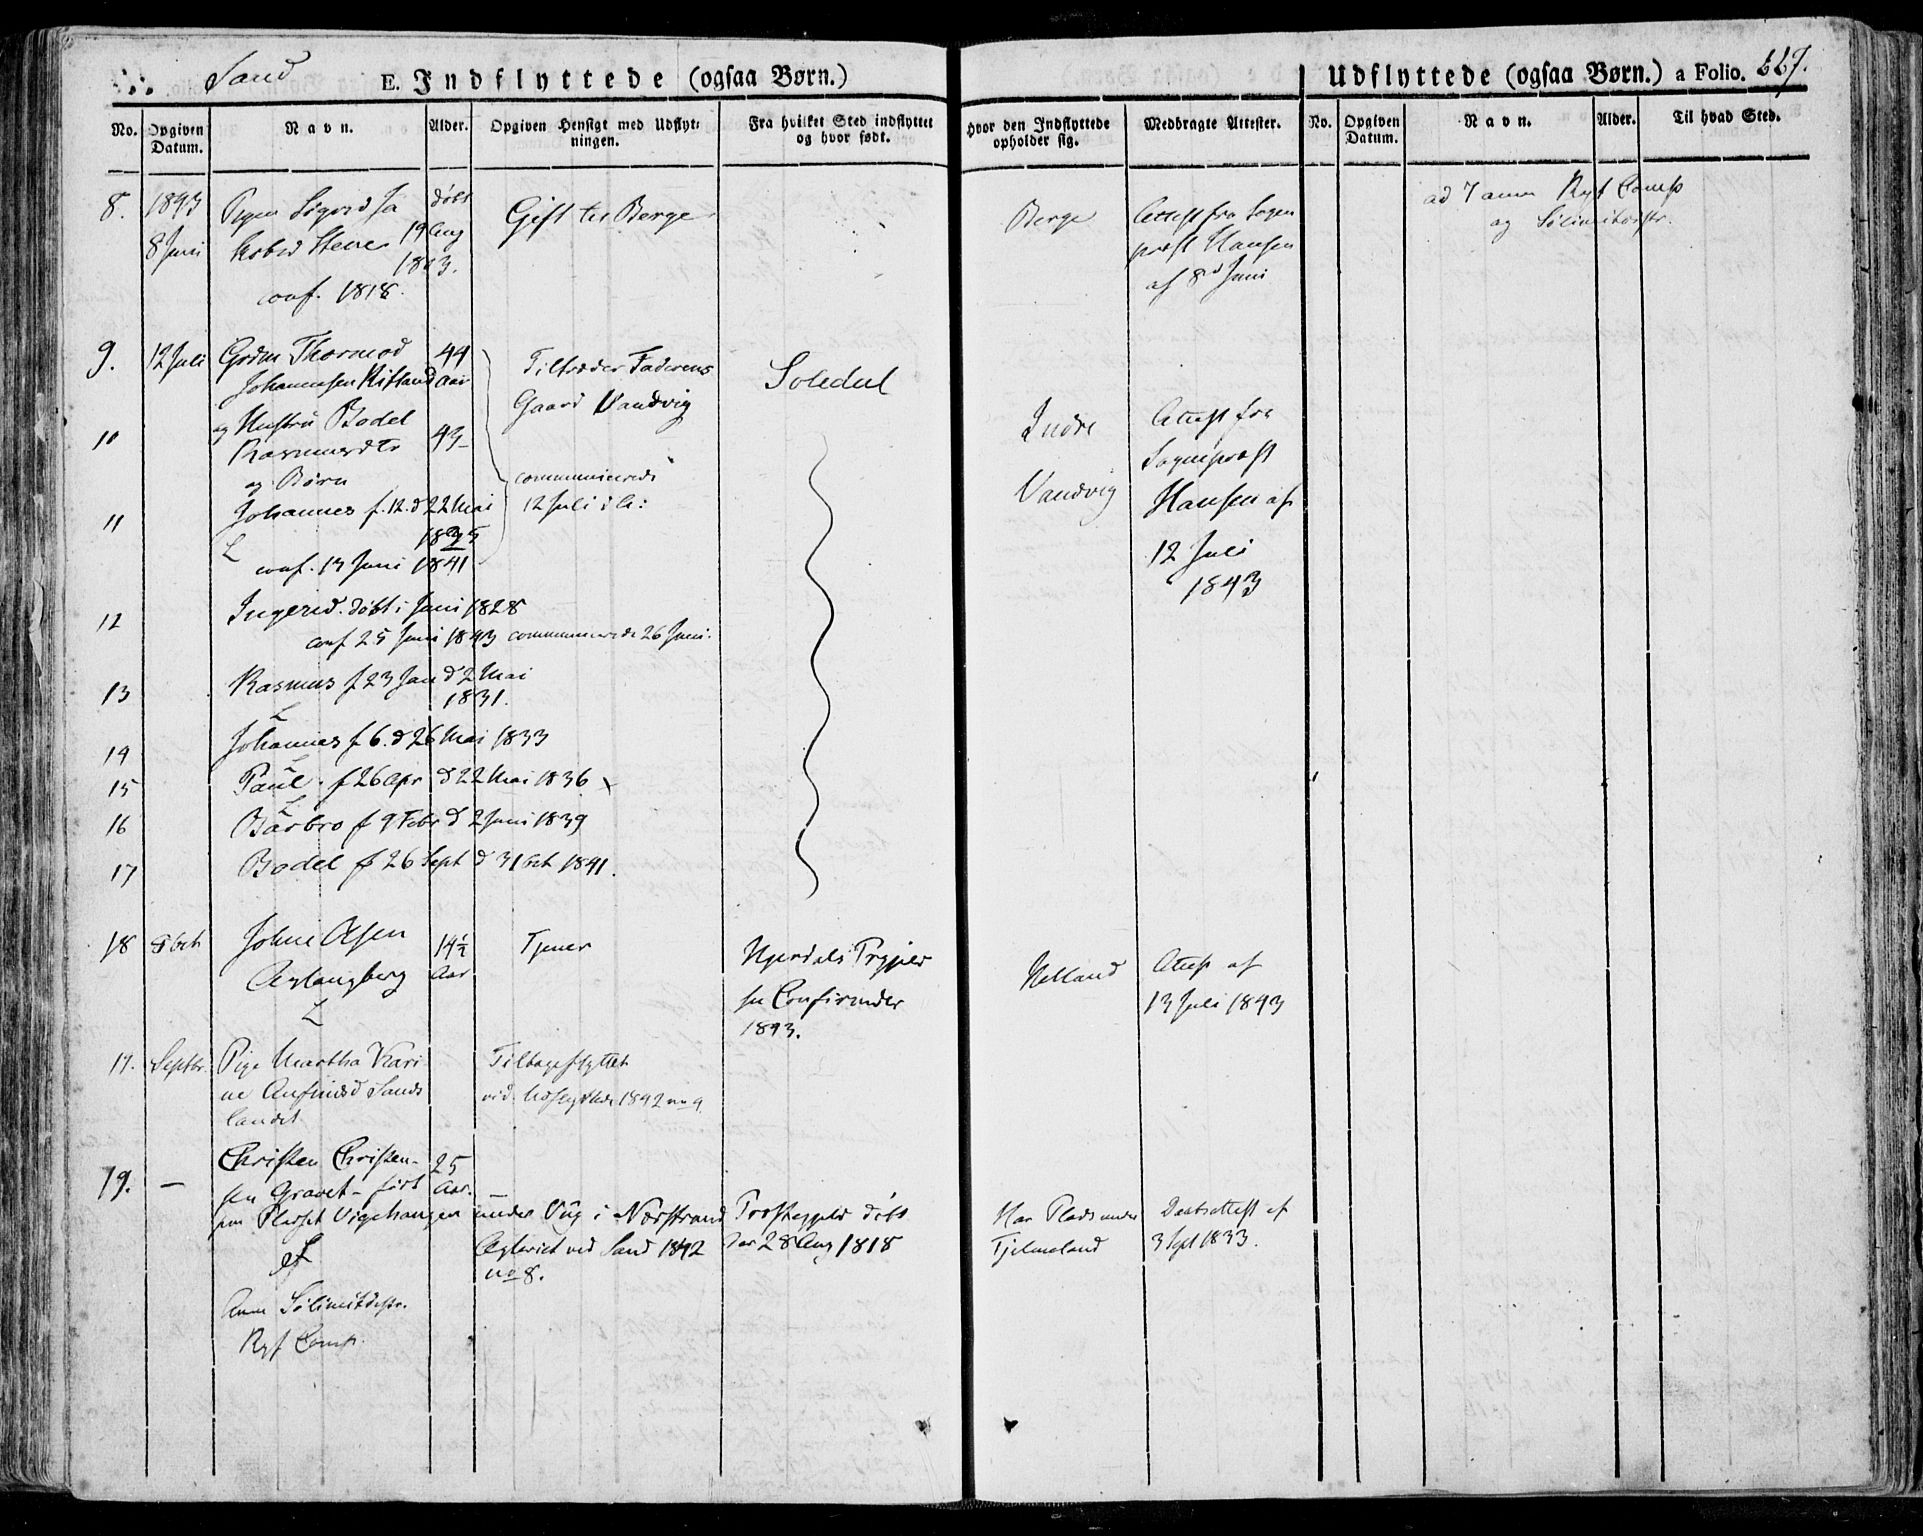 Sand
E. Indflyttede (ogsaa Børn.)
Udflyttede (ogsaa Børn.) a Folio.
No. Opgiven Datum. Navn. Alder. Opgiven Hensigt med Udflytningen. Fra hvilket Sted indflyttet og hvor født. Hvor den Indflyttede opholder sig. Medbragte Attester. No. Opgiven Datum. Navn. Alder. Til hvad Sted.
8. 1843 Pigen Sigrid Ja døbt
8 Juni kobsd Stene 19 Aug
1803.
conf. 1818.
Gift til Berge
Berge
Attest fra Sogne
præst Hansen
af 8d Juni
ad 7 anm Ryf Comp
og
9. 12 Juli Grdm Thormod 44
Johannesen Riftland Aar
og Hustru Bodel
10 Rasmusdtr 43
og Børn
11 Johannes f. 12. d 22 Mai
1825
conf. 13 Juni 1841
Tiltræder Faderens
Gaard Vandvig
communicerede
12 Juli d A:
Soledal
Indre
Vandvig
Attest fra
Sognepræst
Hansen af
12 Juli
1843
12 Ingerid. døbt i Juni 1828
conf 25 Juni 1843 communicerede 26 Juni.
13 Rasmus f 23 Jan d 2 Mai
1831.
14 Johannes f 6. d 26 Mai 1833
15 Paul. f 26 Apr d 22 Mai 1836
16 Barbro f 9 Febr d 2 Juni 1839
17 Bodel f 26 Sept d 31 Oct 1841.
18 Oct Johne Olsen 14½
Aar
Tjener
Hjerdals Prgjeld
Confirmder
1843.
Helland
Attest af
13 Juli 1843
17. Septbr. Pige Martha Kari
ne Anfinsd Sands
landet
Tilbageflyttet
vid. 1842 no 9.
19. — Christen Christen- 25
sen Gravet - Aar.
paa Pladset Vigehaugen under Vig i Nærstrand Præstegjeld døbt
ved Sand 1842 der 28 Aug 1818
no 8.
Har Plads under
Tjelmeland
Daabsattest af
3 Sept 1833.
Anm
Ryf Comp.